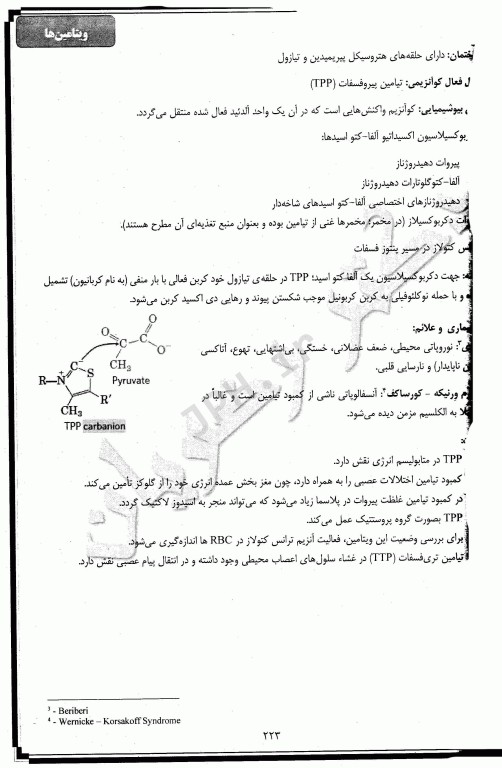 ویتامین‌ها
ختمان: دارای حلقه‌های هتروسیکل پیریمیدین و تیازول
ل فعال کوآنزیمی: تیامین پیروفسفات (TPP)
بیوشیمیایی: کوآنزیم واکنش‌هایی است که در آن یک واحد آلدئید فعال شده منتقل می‌گردد.
بوکسیلاسیون اکسیداتیو آلفا-کتو اسیدها:
پیروات دهیدروژناز
آلفا-کتوگلوتارات دهیدروژناز
دهیدروژنازهای اختصاصی آلفا-کتو اسیدهای شاخه‌دار
ات دکربوکسیلاز (در مخمر؛ مخمرها غنی از تیامین بوده و بعنوان منبع تغذیه‌ای آن مطرح هستند).
س کتولاز در مسیر پنتوز فسفات
جهت دکربوکسیلاسیون یک آلفا کتو اسید؛ TPP در حلقه‌ی تیازول خود کربن فعالی با بار منفی (به نام کربانیون) تشمیل
و با حمله نوکلئوفیلی به کربن کربونیل موجب شکستن پیوند و رهایی دی اکسید کربن می‌شود.
ماری و علائم:
ی³: نوروپاتی محیطی، ضعف عضلانی، خستگی، بی‌اشتهایی، تهوع، آتاکسی
ن ناپایدار) و نارسایی قلبی.
م ورنیکه - کورساکف⁴: آنسفالوپاتی ناشی از کمبود تیامین است و غالباً در
لا به الکلسیم مزمن دیده می‌شود.
O O
C—C
O⁻
CH₃
Pyruvate
S
R—N
R'
CH₃
TPP carbanion
TPP در متابولیسم انرژی نقش دارد.
کمبود تیامین اختلالات عصبی را به همراه دارد، چون مغز بخش عمده انرژی خود را از گلوکز تأمین می‌کند.
در کمبود تیامین غلظت پیروات در پلاسما زیاد می‌شود که می‌تواند منجر به اسیدوز لاکتیک گردد.
TPP بصورت گروه پروستتیک عمل می‌کند.
برای بررسی وضعیت این ویتامین، فعالیت آنزیم ترانس کتولاز در RBC ها اندازه‌گیری می‌شود.
تیامین تری‌فسفات (TTP) در غشاء سلول‌های اعصاب محیطی وجود داشته و در انتقال پیام عصبی نقش دارد.
³ - Beriberi
⁴ - Wernicke – Korsakoff Syndrome
۲۲۳